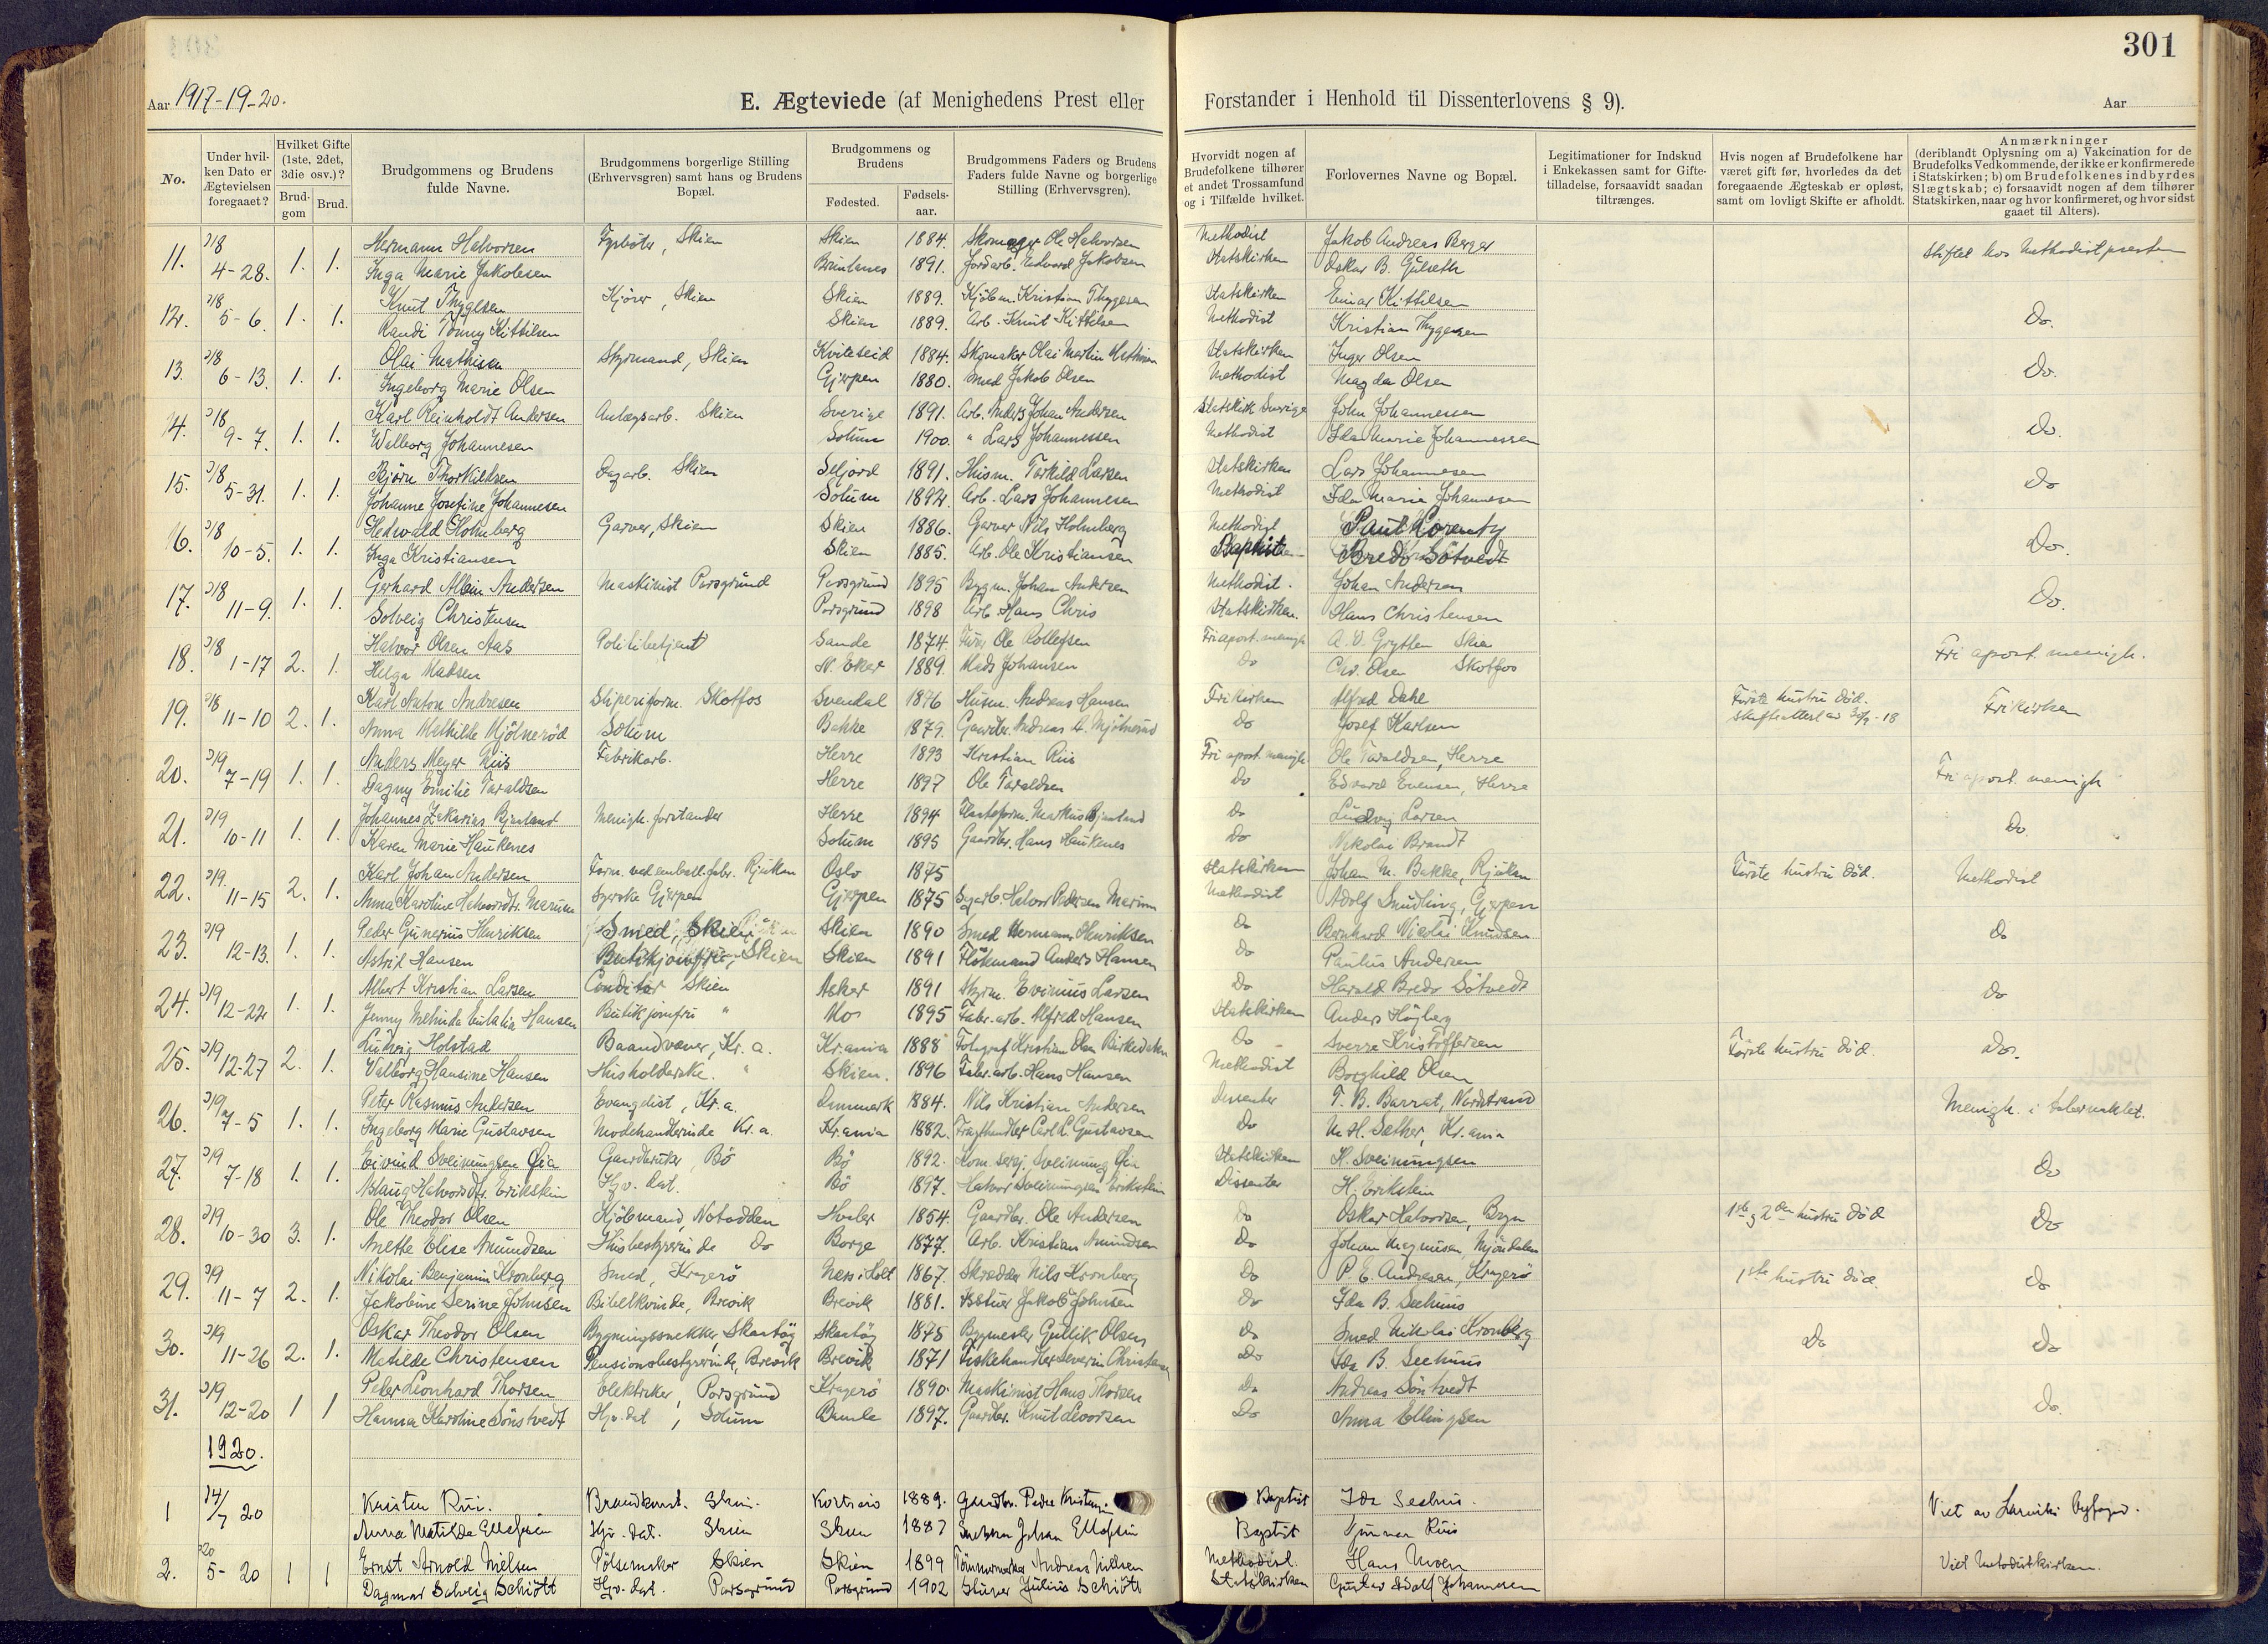 301
Aar 1917-19-20.
E. Ægteviede (af Menighedens Prest eller Forstander i Henhold til Dissenterlovens § 9).
Aar
No.
Under hvilken Dato er Ægtevielsen foregaaet?
Hvilket Gifte (1ste, 2det, 3die osv.)?
Brudgom
Brud.
Brudgommens og Brudens fulde Navne.
Brudgommens borgerlige Stilling (Erhvervsgren) samt hans og Brudens Bopæl.
Brudgommens og Brudens
Fødested.
Fødselsaar.
Brudgommens Faders og Brudens Faders fulde Navne og borgerlige Stilling (Erhvervsgren).
Hvorvidt nogen af Brudefolkene tilhører et andet Trossamfund og i Tilfælde hvilket.
Forlovernes Navne og Bopæl.
Legitimationer for Indskud i Enkekassen samt for Giftetilladelse, forsaavidt saadan tiltrænges.
Hvis nogen af Brudefolkene har været gift før, hvorledes da det foregaaende Ægteskab er opløst, samt om lovligt Skifte er afholdt.
Anmærkninger (deriblandt Oplysning om a) Vakcination for de Brudefolks Vedkommende, der ikke er konfirmerede i Statskirken; b) om Brudefolkenes indbyrdes Slægtskab; c) forsaavidt nogen af dem tilhører Statskirken, naar og hvor konfirmeret, og hvor sidst gaaet til Alters).
11. 18 4-28. 1. 1. Hermann Halvorsen Fyrbøter, Skien Skien 1884. Skomager Ole Halvorsen Methodist Jakob Andreas Berger
Inga Marie Jakobsen 1891. Jordarb. Edvard Jakobsen Statskirken Oskar B. Gulseth
12. 18 5-6. 1. 1. Knut Thygesen Kjører, Skien Skien 1889. Kjøbm. Kristian Thygesen Statskirken Einar Kittilsen Do.
Randi Tonny Kittilsen Skien 1889. Arb. Knut Kittilsen Methodist Kristian Thygesen
13. 18 6-13. 1. 1. Olai Mathisen Styrmand, Skien Kviteseid 1884. Skomaker Olai Martin Mathisen Statskirken Inger Olsen Do.
Ingeborg Marie Olsen Gjerpen 1880. Smed Jakob Olsen Methodist Magda Olsen
14. 18 9-7. 1. 1. Karl Reinholdt Andersen Anlægsarb. Skien Sverige 1891. Arb. Anders Johan Andersen Statskirk Sverige John Johannessen Do.
Walborg Johannesen Solum 1900. " Lars Johannessen Methodist Ida Marie Johannessen
15. 18 5-31. 1. 1. Bjørn Thorkildsen Dagarb. Skien Seljord 1891. Husm. Torkild Larsen Statskirken Lars Johannesen Do
Johanne Josefine Johannesen Solum 1892. Arb. Lars Johannesen Methodist Ida Marie Johannesen
16. 18 10-5. 1. 1. Hedvald Holmberg Garver, Skien Skien 1886. Garver Nils Holmberg Methodist Paul Do.
Inga Kristiansen Skien 1885. Arb. Ole Kristiansen Baptist Bredo Søtvedt
17. 18 11-9. 1. 1. Gerhard Andersen Maskinist Porsgrund Porsgrund 1895 Bygm. Johan Andersen Methodist. Johan Andersen Do.
Solveig Christensen Porsgrund 1898 Arb Hans Chris Statskirken. Hans Christensen
18. 18 1-17 2. 1. Halvor Olsen Aas Politibetjent Sande 1874 Ole Rollefsen Fri apost. menigh A. V. Grythen Skien Fri apost. menigh.
Helga Madsen N. Eker 1889 Mads Johansen Do Chr. Olsen Skotfos
19. 18 11-10 2. 1. Karl Anton Andresen Sliperiform. Skotfos 1876 Husm. Andreas Hansen Frikirken Alfred Dahl Første hustru død. Frikirken
Anna Mathilde Mjølnerød Solum Bakke 1879. Gaardbr. Andreas Do Josef Karlsen
20. 19 7-19 1. 1. Anders Meyer Riis Fabrikarb. Herre 1893 Kristian Riis Fri apost. menigh Ole Taraldsen, Herre Fri apost. menigh
Dagny Emilie Taraldsen Herre 1897 Ole Taraldsen Do Edvard Evensen, Herre
21. 19 10-11 1. 1. Johannes Zakarias Bjørntand Menigh. forstander Herre 1894 Markus Bjørntand Do Ludvig Larsen Do.
Karen Marie Haukenes Solum 1895 Gaardbr. Hans Haukenes Do Nikolai Brandt
22. 19. 11-15 2. 1. Karl Johan Andersen Form. ved emball. fabr. Rjukan Oslo 1875 Statskirken Johan M. Bakke, Rjukan Første hustru død. Methodist
Anna Karoline Halvorsdtr. Marum Syerske Gjerpen Gjerpen 1875 Sagarb. Halvor Pedersen Marum Methodist Adolf Smidling, Gjerpen
23. 19 12-13. 1. 1. Peder Gunerius Henriksen Smed, Skien Skien 1890 Smed Hermann Henriksen Do Bernhard Nicolai Knudsen Do
Astrid Hansen Butikjomfru, Skien Skien 1891 Fløtmand Anders Hansen Do Paulus Andersen
24. 19 12-22 1. 1. Albert Kristian Larsen Conditor Skien Asker 1891 Evinius Larsen Do Harald Bredo Søtvedt Do
Jenny Melinda Eulalia Hansen Butikjomfru " Mo 1895 Fabr.-arb. Alfred Hansen Statskirken Anders Høgberg
25. 19 12-27 2. 1. Ludvig Holstad Baandvæver, Kr.a. Kr.ania 1888 Fotograf Kristian Olsen Do Sverre Kristoffersen Første hustru død. Do.
Valborg Hansine Hansen Husholderske. " Skien. 1896 Fabr.arb. Hans Hansen Methodist Borghild Olsen
26. 19 7-5 1. 1. Peter Rasmus Andersen Evangelist, Kr.a. Danmark 1884. Nils Kristian Andersen Dissenter T. B. Barrat, Nordstrand Menigh. i tabernaklet.
Ingeborg Marie Gustavsen Modehandlerinde Kr.a. Kr.ania 1882. Carl L. Gustavsen Do M. H. Sæther, Kr.ania
27. 19 7-18 1. 1. Eivind Sveinungsen Lia Gaardbruker, Bø Bø 1892. Kom. serj. Sveinung Lia Statskirken H. Sveinungsen Do
Aslaug Halvorsdtr. Erikstein Hjv. dat. Bø 1897. Halvor Sveinungsen Erikstein Dissenter H. Erikstein
28. 19 10-30 3. 1. Ole Theodor Olsen Kjøbmand, Notodden Hvaler 1854. Gaardbr. Ole Andersen Do Oskar Halvorsen, Bryn 1ste og 2den hustru død Do
Anette Elise Amundsen Husbestyrerinde Do Borge 1877. Arb. Kristian Amundsen Do Johan Magnusen, Mjøndalen
29. 19 11-7 2. 1. Nikolai Benjamin Kronberg Smed, Kragerø Næs i Holt 1867. Skrædder Nils Kronberg Do P. E. Andresen, Kragerø 1ste hustru død. Do
Jakobine Serine Johnsen Bibelkvinde, Brevik Brevik 1881. Jakob Johnsen Do Ida B. Seehuus
30. 19 11-26 2. 1. Oskar Theodor Olsen Bygningssnekker, Skaatøy Skaatøy 1875 Bygmester Gullik Olsen Do Smed Nikolai Kronberg Do Do
Matilde Christensen Pensionsbestyrerinde, Brevik Brevik 1871 Fiskehandler Severin Christensen Do Ida B. Seehuus
31. 19 12-20 1 1 Peder Leonhard Thorsen Elektriker, Porsgrund Kragerø 1890. Maskinist Hans Thorsen Do Andreas Sønstvedt Do.
Hanna Karoline Sønstvedt Hjv. dat, Solum Bamle 1897. Gaardbr. Knut Do Anna Ellingsen
1920.
1 14/7 20 Kristen Riis. Skien. 1889. Gaardbr. Peder Baptist Ida Seehus. Viet av Larviks byfoged.
Anna Matilde Ellefsen Hjv. dat. Skien Skien 1887 Johan Ellefsen Baptist Gunnar Riis
2. 20 5-20 1 1 Ernst Arnold Nielsen Pølsemaker Skien Skien 1899 Tømmermerker Andreas Nielsen Methodist. Hans Moen Viet Metodistkirken.
Dagmar Solveig Schiøtt Hjv. dat. Porsgrund Porsgrund 1902 Julius Schiøtt Statskirken Gustav Adolf Johannesen